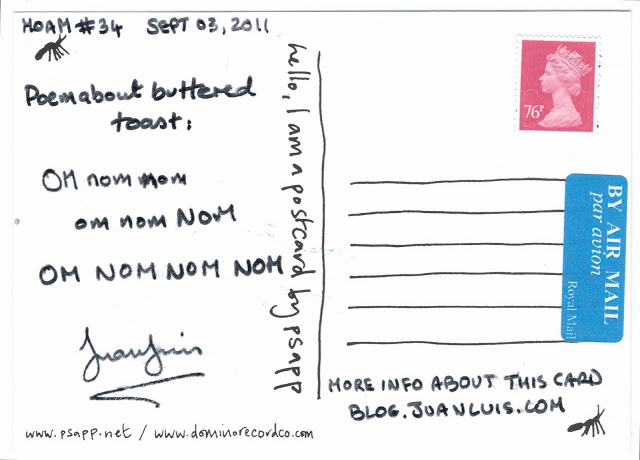 HOAM #34 SEPT 03, 2011
Poem about buttered
toast:
OM nom mom
om nom NOM
OM NOM NOM NOM
JuanLuis
www.psapp.net / www.dominorecordco.com
hello, I am a postcard by psapp
76P
BY AIR MAIL
par avion
Royal Mail
MORE INFO ABOUT THIS CARD
BLOG.JUANLUIS.COM